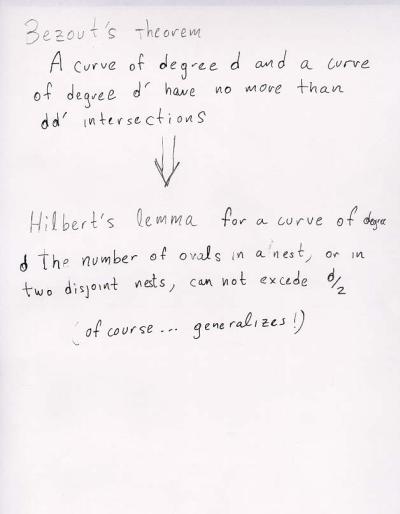 Bezout's Theorem
A curve of degree d and a curve
of degree d' have no more than
dd' intersections
Hilbert's lemma for a curve of degree
d the number of ovals in a nest, or in
two disjoint nests, can not excede d/2
(of course... generalizes!)